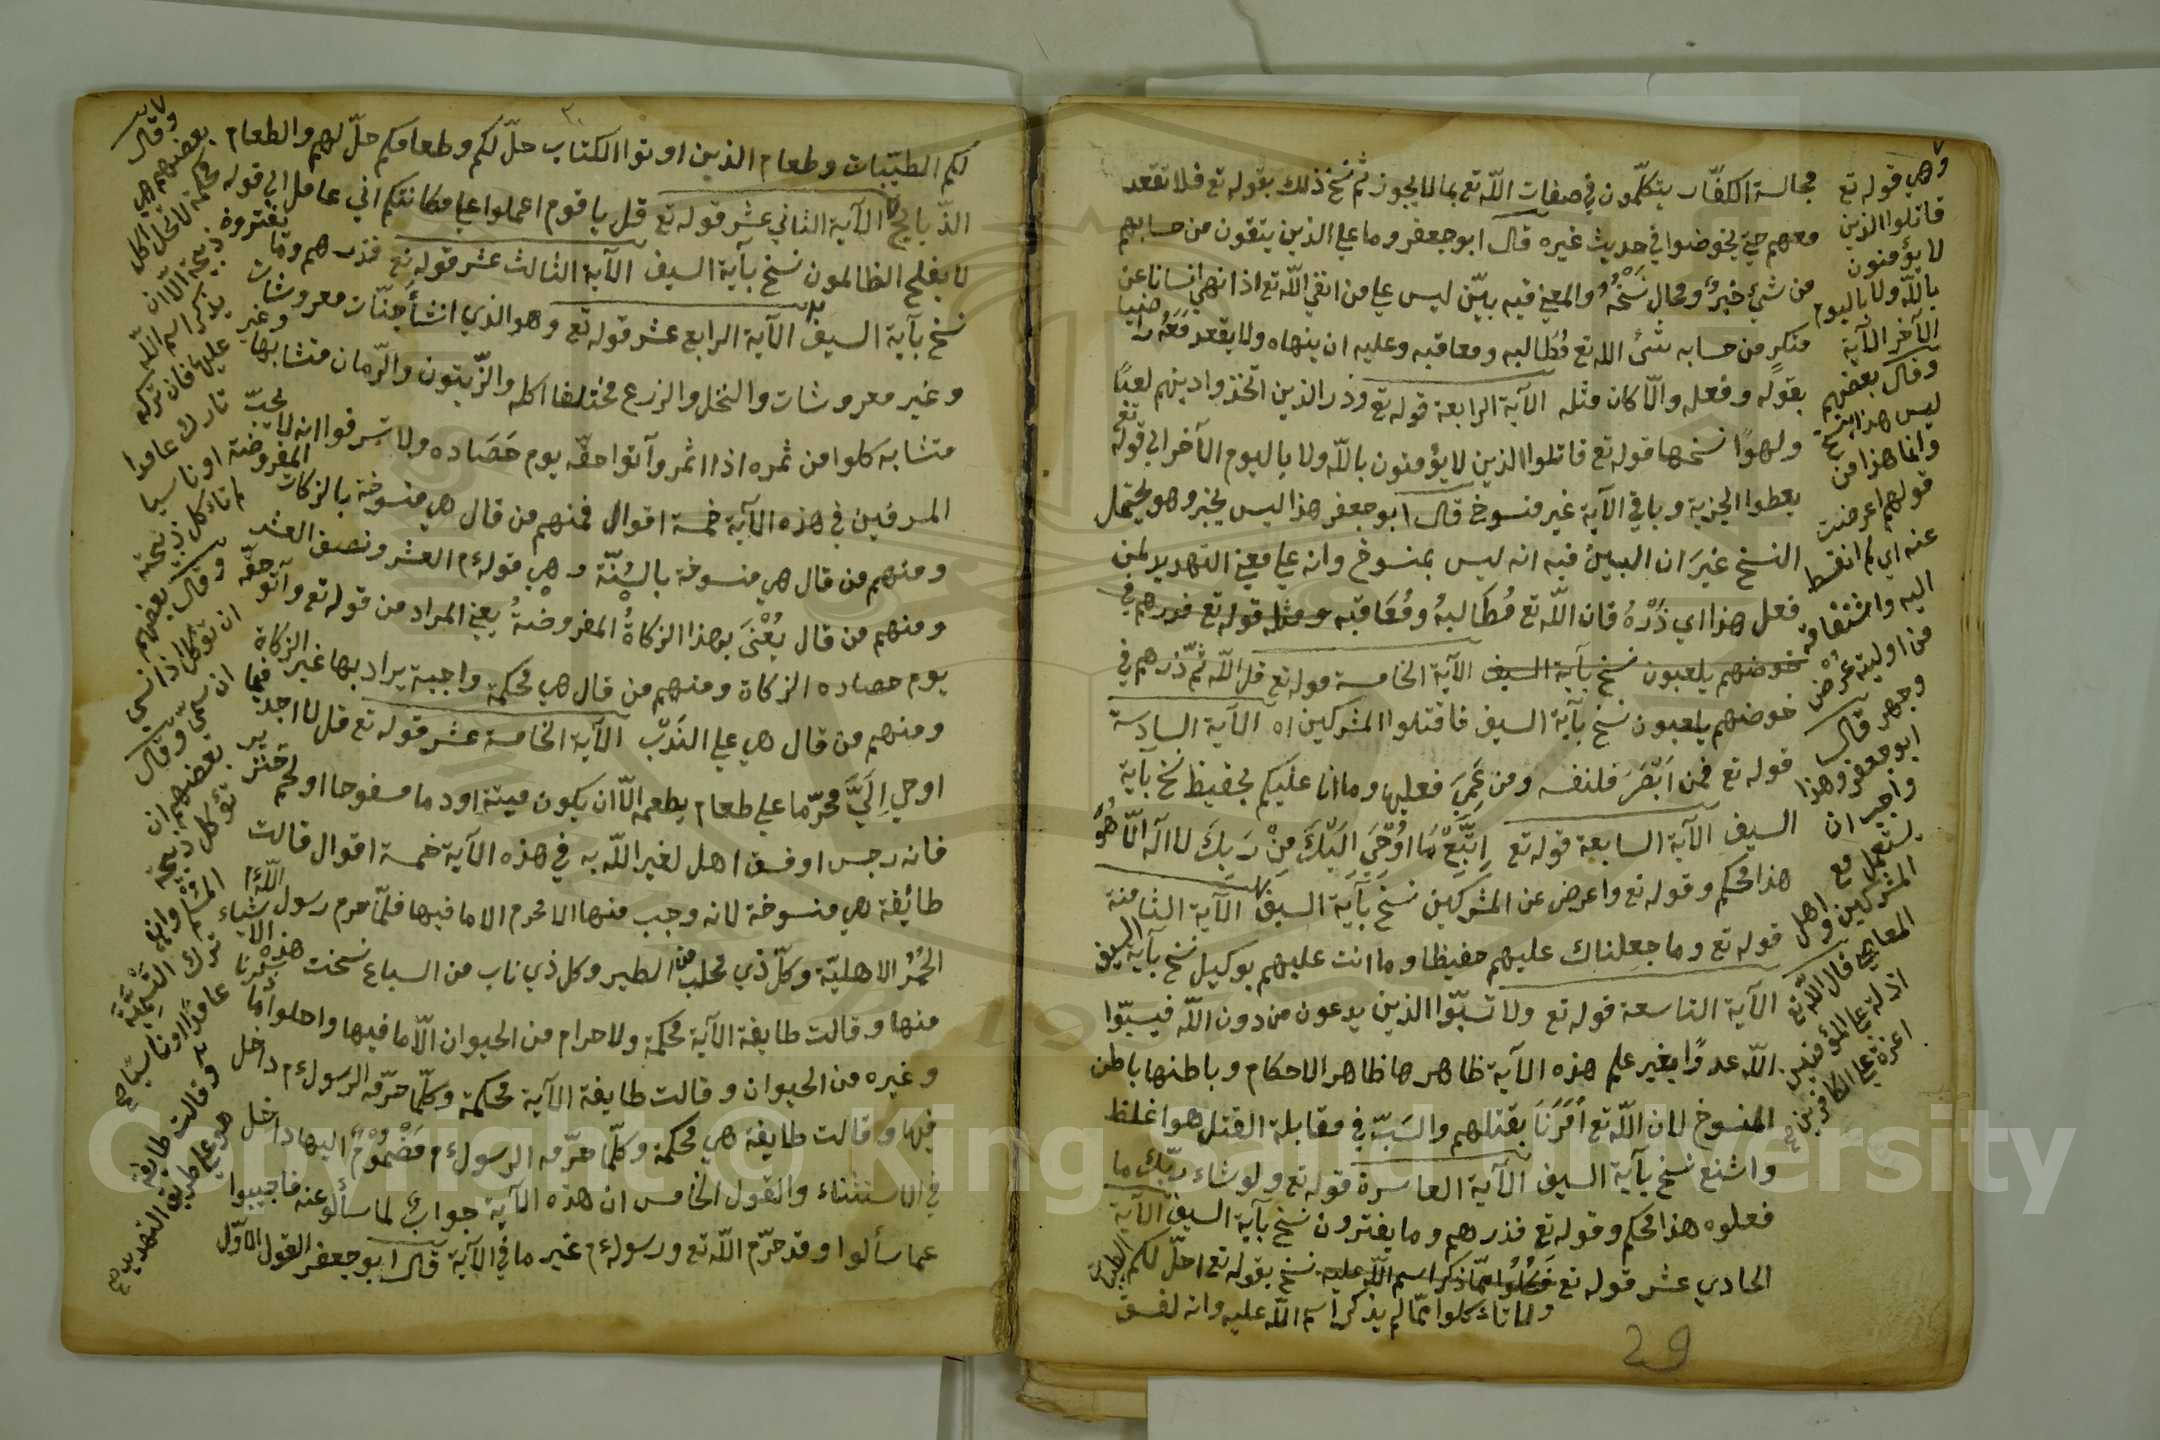 مجالسة الكفّار يتكلّمون في صفات اللّه تع بما لا يجوز ثم نسخ ذلك بقوله تع فلا تقعد
معهم حتى يخوضوا في حديث غيره قال ابو جعفر وما على الذين يتقون من حسابهم
من شيء خبرٌ ومحال نَسْخُهُ والمعنى فيه بيّن ليس على من اتقى اللّه تع اذا نهى انسانا عن
منكرٍ من حسابه شئ اللّه تع مُطَالبه ومعاقبه وعليه ان ينهاه ولا يقعد مَعَهُ راضيا
بقوله وفعله والّا كان مثله الآية الرابعة قوله تع وذر الذين اتخذوا دينهم لعبًا
ولهوًا نسخها قوله تع قاتلوا الذين لا يؤمنون باللّه ولا باليوم الآخر الى قوله تع
يعطوا الجزية وباقي الآية غير منسوخ قال ابو جعفر هذا ليس بخبر وهو يحتمل
النسخ غيرَ ان البيين فيه انه ليس بمنسوخ وانه على معنى التهديد لمن
فعل هذا اي ذَرْهُ فان اللّه تع مُطَالبهُ ومُعَاقبه ومثله قوله تع فذرهم في
خوضهم يلعبون نسخ بآية السيف الآية الخامسة قوله تع قل اللّه ثمّ ذرهم في
خوضهم يلعبون نسخ بآية السيف فاقتلوا المشركين اه الآية السادسة
قوله تع فمن اَبْصَرَ فلنفسه ومن عَمِيَ فعليها وما انا عليكم بحفيظ نسخ بآية
السيف الآية السابعة قوله تع اِتَّبِعْ مَا اُوْحِيَ اِلَيْكَ مِنْ رَبِكَ لا اله الّا هُوَ
هذا محكم وقوله تع واعرض عن المشركين نسخ بآية السيف الآية الثامنة
قوله تع وما جعلناك عليهم حفيظا وما انت عليهم بوكيل نسخ بآية السيف
الآية التاسعة قوله تع ولا تسبّوا الذين يدعون من دون اللّه فيسبّوا
اللّه عدوًا بغير علم هذه الآية ظاهرها ظاهر الاحكام وباطنها باطن
المنسوخ لان اللّه تع اَمَرَنَا بقتلهم والسَبّ في مقابلة القتل هو اغلظ
واشنع نسخ بآية السيف الآية العاشرة قوله تع ولو شاء ربّك ما
فعلوه هذا محكم وقوله تع فذرهم وما يفترون نسخ بآية السيف الآية
الحادي عشر قوله تع فَكُلُوا ممّا ذكر اسم اللّه عليه نسخ بقوله تع احلّ لكم الطيبات
ولا تاءكلوا ممّا لم يذكر اسم اللّه عليه وانه لفسق
وهي قوله تع
قاتلوا الذين
لا يؤمنون
باللّه ولا باليوم
الآخر الآية
وقال بعضهم
ليس هذا بنسخ
وانما هذا من
قولهم اعرضت
عنه اي لم انقسط
اليه
وجهر قال
ابو جعفر وهذا
واجب ان
يستعمل مع
المشركين واهل
المعاصي قال اللّه تع
اذلة على المؤمنين
اعزة على الكافرين
29
لكم الطيّبات وطعام الذين اوتوا الكتاب حلّ لكم وطعامكم حلّ لهم والطعام
الذّبايح الآية الثاني عشر قوله تع قل يا قوم اعملوا على مكانتكم اني عامل الى قوله
لا يفلح الظالمون نسخ بآية السيف الآية الثالث عشر قوله تع فذرهم وما يفترون
نسخ بآية السيف الآية الرابع عشر قوله تع وهو الذي انشأ جنّات معروشات
وغير معروشات والنخل والزرع مختلفا اكله والزّيتون والرّمان متشابها وغير
متشابه كلوا من ثمره اذا اثمر وآتوا حقّه يوم حَصَاده ولا تسرفوا انه لا يحبّ
المسرفين في هذه الآية خمسة اقوال فمنهم من قال هي منسوخة بالزكاة المفروضة
ومنهم من قال هي منسوخة بالسُنّة وهي قولهم العشر ونصف العشر
ومنهم من قال يُعْنَى بهذا الزكاةُ المفروضةُ يعني المراد من قوله تع وآتو حقّه
يوم حصاده الزكاة ومنهم من قال هي محكمة واجبة يراد بها غير الزكاة
ومنهم من قال هي على النَدْب الآية الخامسة عشر قوله تع قل لا اجد فيما
اوحي اِلَيَّ محرّما على طعام يطعمه الّا ان يكون ميتة او دما مسفوحا او لحم خنزير
فانه رجس او فسق اهل لغير اللّه به في هذه الآية خمسة اقوال قالت
طائفة هي منسوخة لانه وجب منها الا محرم الا ما فيها فلمّا حرم رسول اللّه
الحُمُر الاهليّة وكلّ ذي مخلب من الطير وكل ذي ناب من السباع نسخت هذه الاشياء
منها وقالت طايفة الآية محكمة ولا حرام من الحيوان الّا ما فيها واحلوا
وغيره من الحيوان وقالت طايفة الآية محكمة وكلّما حرّمه الرسول م داخل
فيها وقالت طايفة هي محكمة وكلّما حرّمه الرسول م مَضْمُوْمٌ اليها داخل
في الاستثناء والقول الخامس ان هذه الآية جوابٌ لما سألو عنه فاجيبوا
عما سألوا وقد حرّم اللّه تع ورسوله م غير ما في الآية قال ابو جعفر القول الاوّل
وقال
بعضهم هي
محكمة لا تحل اكل
ذبيحة الّا ان
يذكر اسم اللّه
عليها فان تركه
تارك عامدا
او ناسيا
لم تاءكل ذبيحته
وقال بعضهم
ان تؤكل اذا نسي
ان يسمّي وقال
بعضهم ان
تؤكل ذبيحة
المسلم وان
ترك التسمية
عامدًا او ناسيًا
وقالت طايفة
هو على طريق التهديد
Copyright © King Saud University